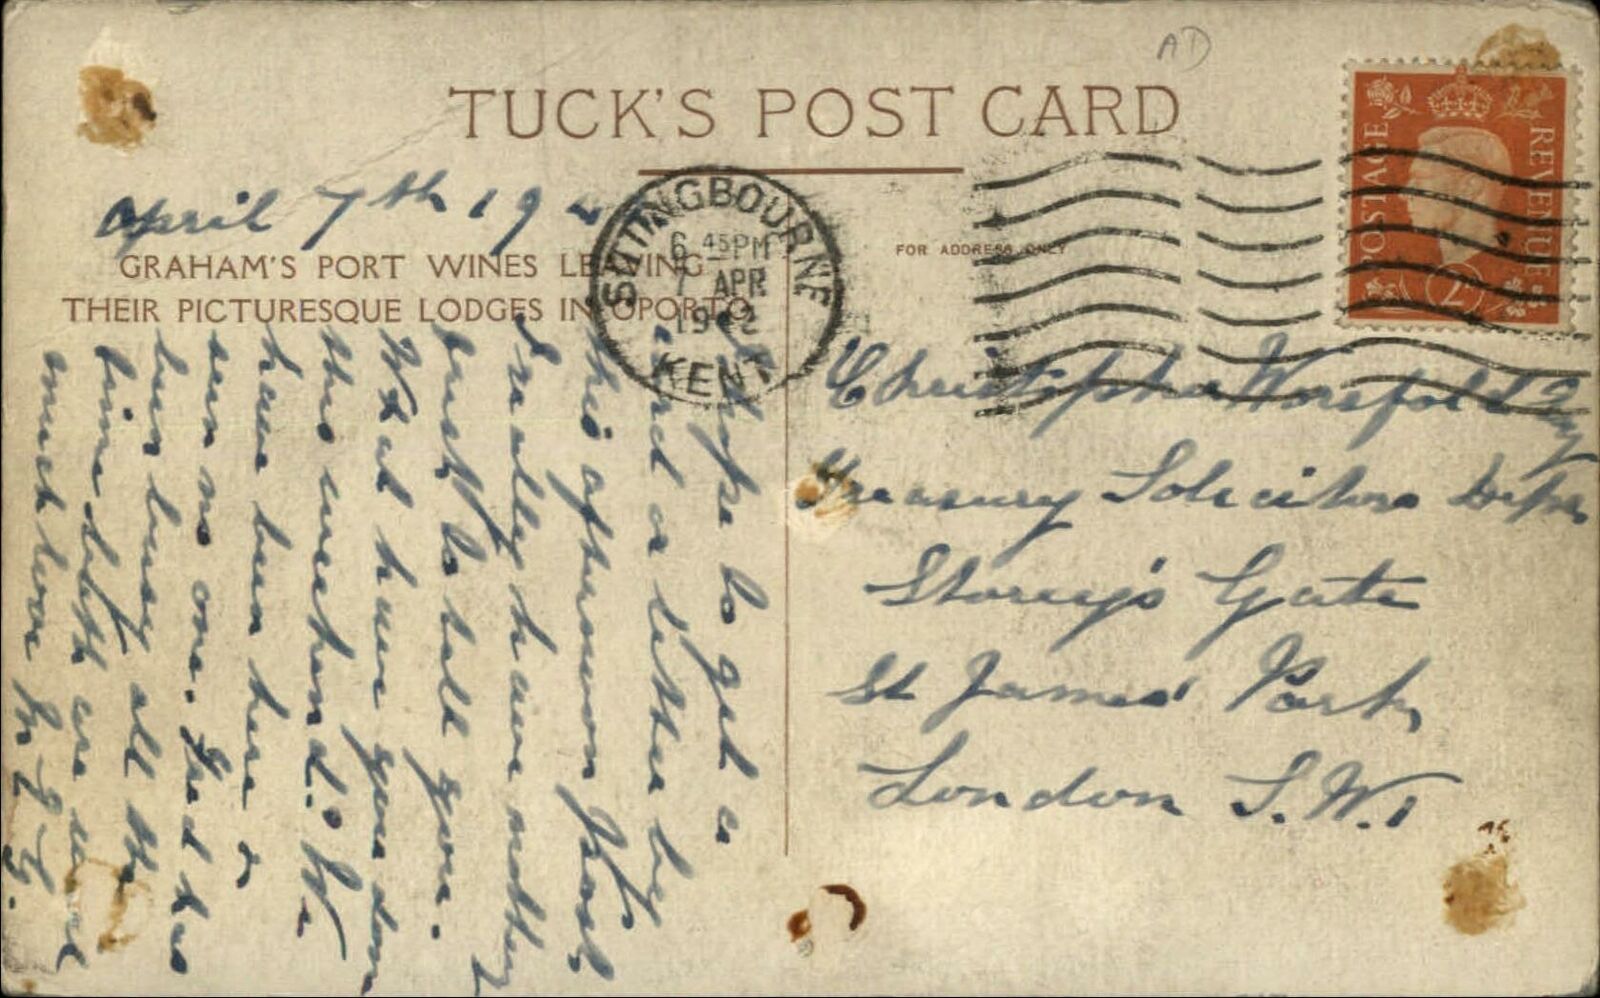 AD
TUCK'S POST CARD
April 7th 19
GRAHAM'S PORT WINES LEAVING
THEIR PICTURESQUE LODGES IN OPORTO
SITTINGBOURNE
6 45PM
7 APR
1942
KENT
FOR ADDRESS ONLY
POSTAGE
REVENUE
2D
I hope to get a
card or letter by
this afternoon's post
I really have nothing
fresh to tell you.
What have you done
this weekend? We
have been here &
seen no one. Fred has
been busy all the
time both are well
much love
Christopher Worsfold Esq
Treasury Solicitors Dept
Storey's Gate
St James' Park,
London S.W.1